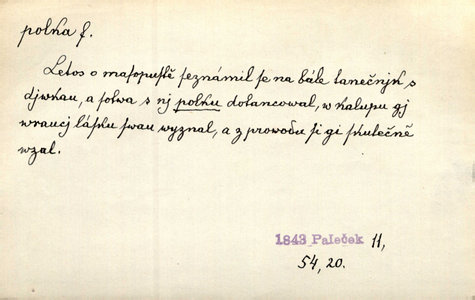 polka f.
Letos o masopustě seznámil se na bále tanečnjk s
djwkau, a sotwa s nj polku dotancowal, w kalupu gj
wraucj lásku swau wyznal, a z prowodu si gi skutečně
wzal.
1843 Paleček 11,
54, 20.